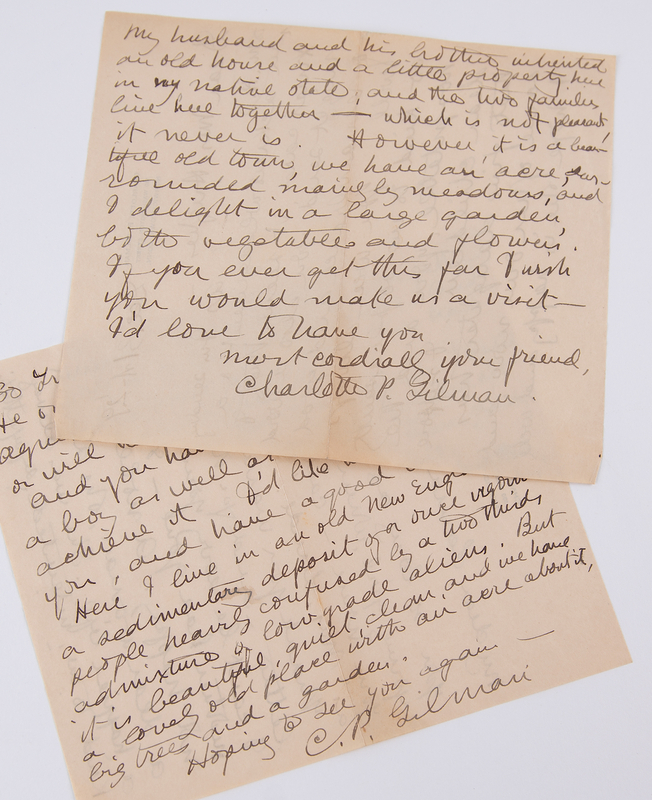 My husband and his brother inherited
an old house and a little property here
in my native state, and the two families
live here together — which is not pleasant,
it never is. However, it is a beau-
tiful old town, we have an acre, sur-
rounded mainly by meadows, and
I delight in a large garden,
both vegetables and flowers.
If you ever get this far I wish
you would make us a visit —
I'd love to have you
most cordially your friend,
Charlotte P. Gilman.
So
He
or will
and you
a boy as well as
achieve it I'd like
you, and have a good
Here I live in an old New
a sedimentary deposit of a once vigorous
people heavily confused by a two thirds
admixture of low grade aliens. But
it is beautiful, quiet, clean, and we have
a lovely old place with an acre about it,
big trees and a garden.
Hoping to see you again —
C. P. Gilman